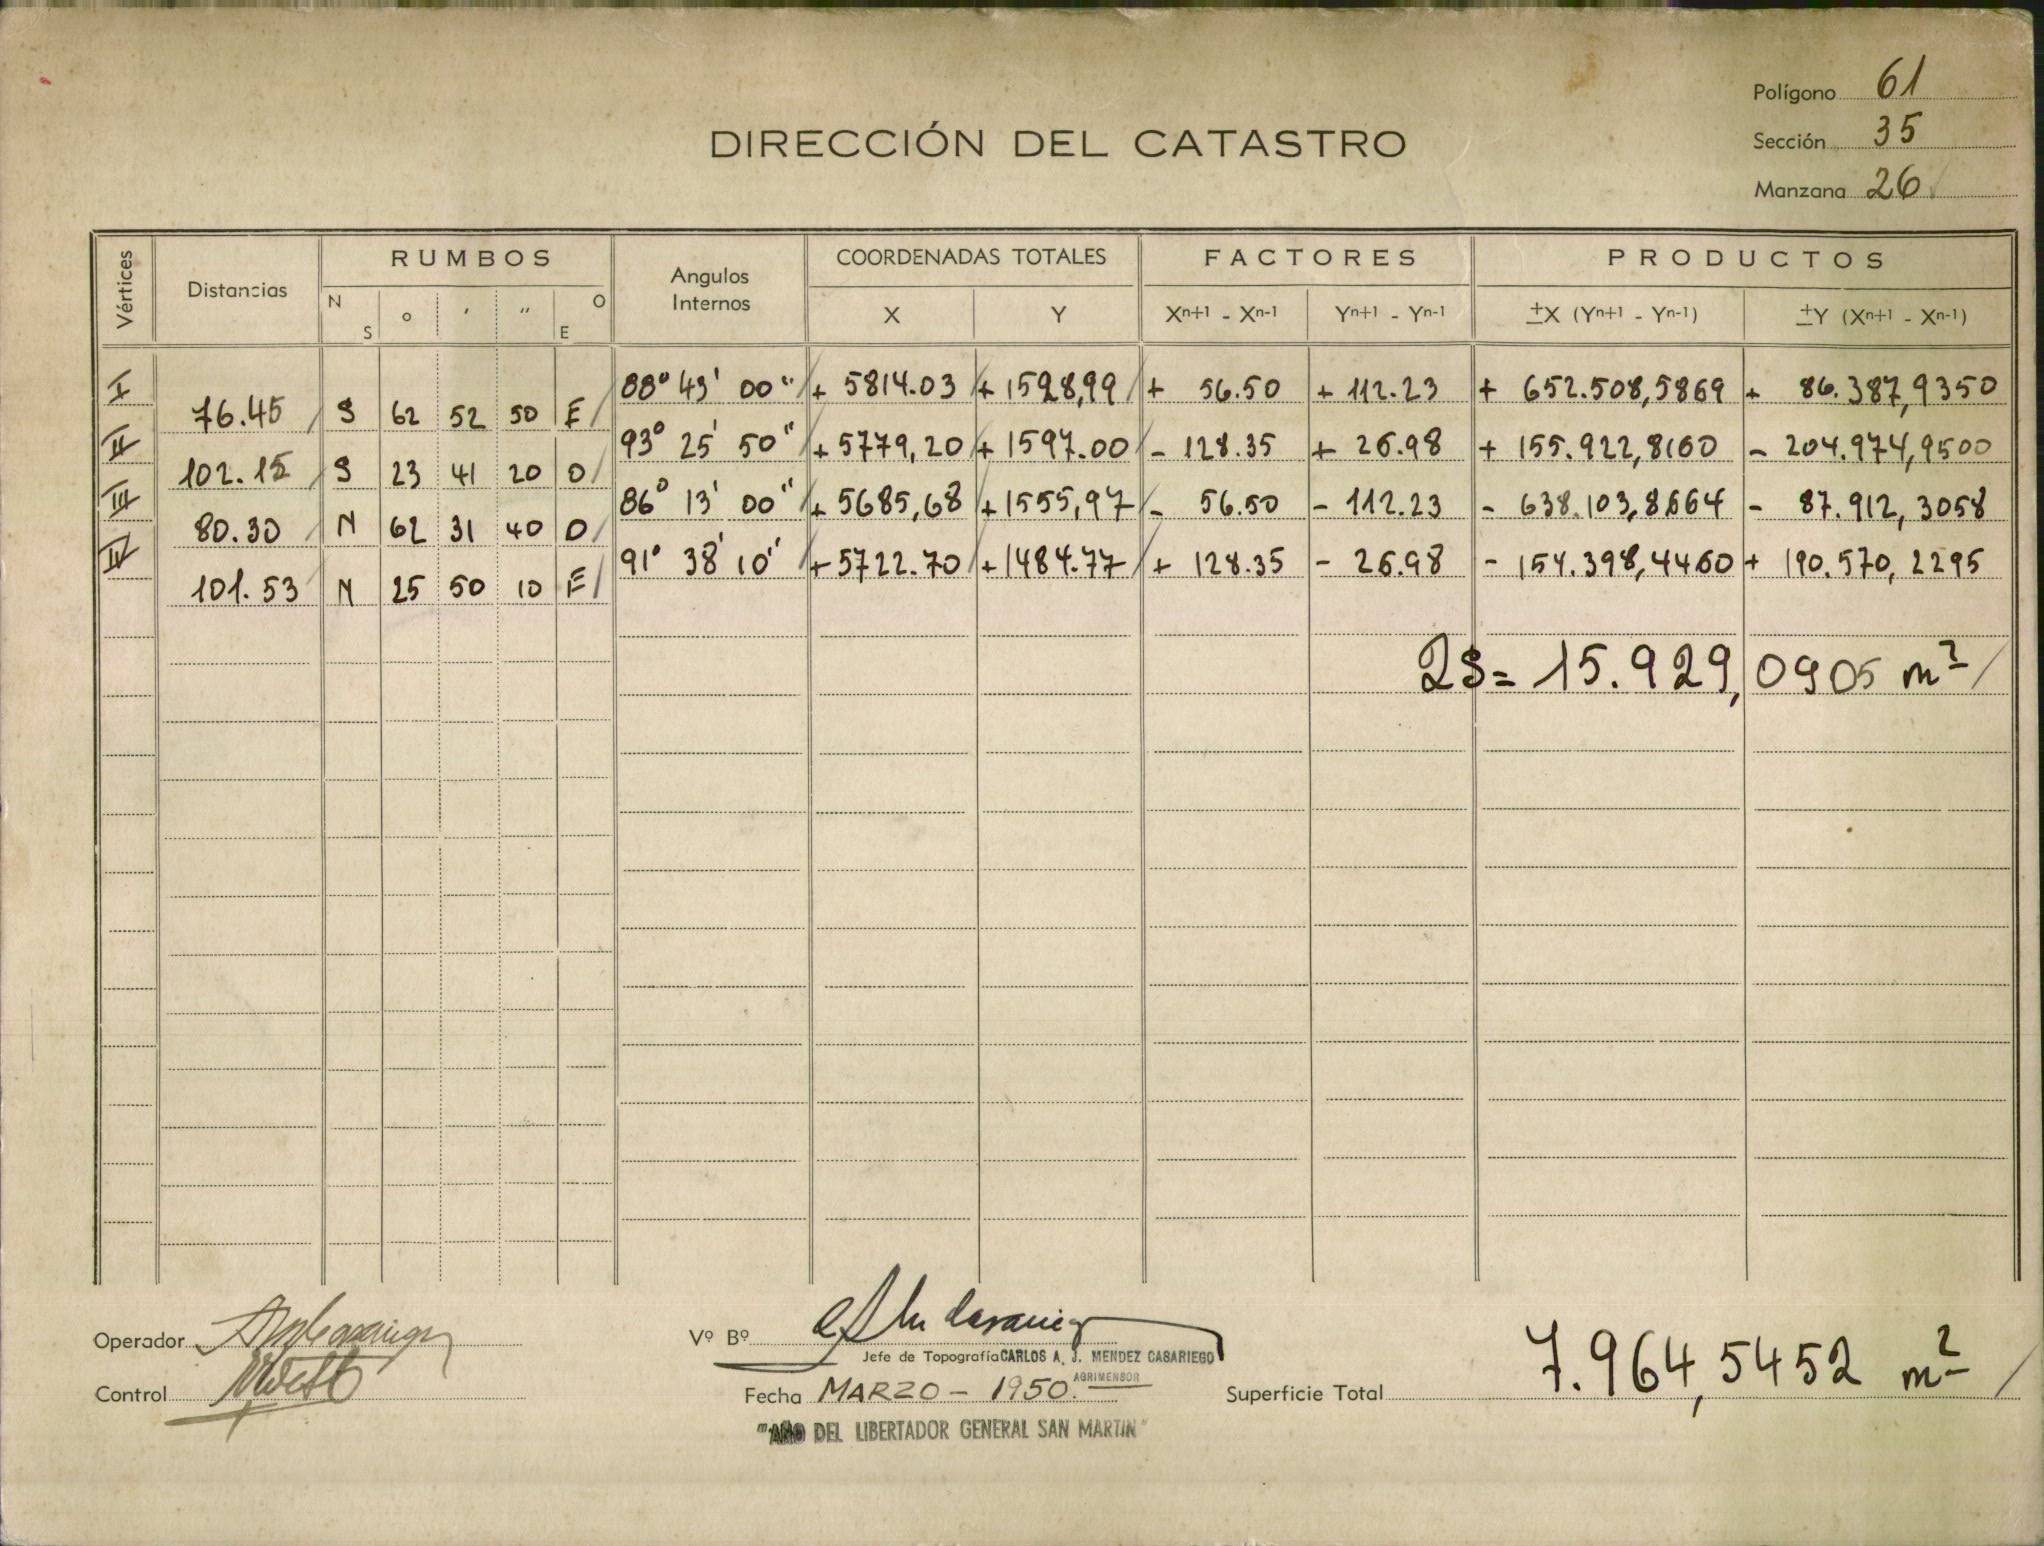 Polígono 61
DIRECCIÓN DEL CATASTRO
Sección 35
Manzana 26
Vértices Distancias RUMBOS Angulos Internos COORDENADAS TOTALES FACTORES PRODUCTOS
N S o ' '' E O X Y Xn+1 - Xn-1 Yn+1 - Yn-1 ±X (Yn+1 - Yn-1) ±Y (Xn+1 - Xn-1)
I 88° 43' 00" + 5814.03 + 1528,99 + 56.50 + 112.23 + 652.508,5869 + 86.387,9350
76.45 S 62 52 50 E
II 93° 25' 50" + 5779,20 + 1597.00 - 128.35 + 26.98 + 155.922,8160 - 204.974,9500
102.15 S 23 41 20 O
III 86° 13' 00" + 5685,68 + 1555,97 - 56.50 - 112.23 - 638.103,8664 - 87.912,3058
80.30 N 62 31 40 O
IV 91° 38' 10" + 5722.70 + 1484.77 + 128.35 - 26.98 - 154.398,4460 + 190.570,2295
101.53 N 25 50 10 E
2S = 15.929,0905 m²
Operador
Vº Bº
Jefe de Topografía CARLOS A. J. MENDEZ CASARIEGO
AGRIMENSOR
Control
Fecha MARZO - 1950.
Superficie Total 7.964,5452 m²
"AÑO DEL LIBERTADOR GENERAL SAN MARTIN"